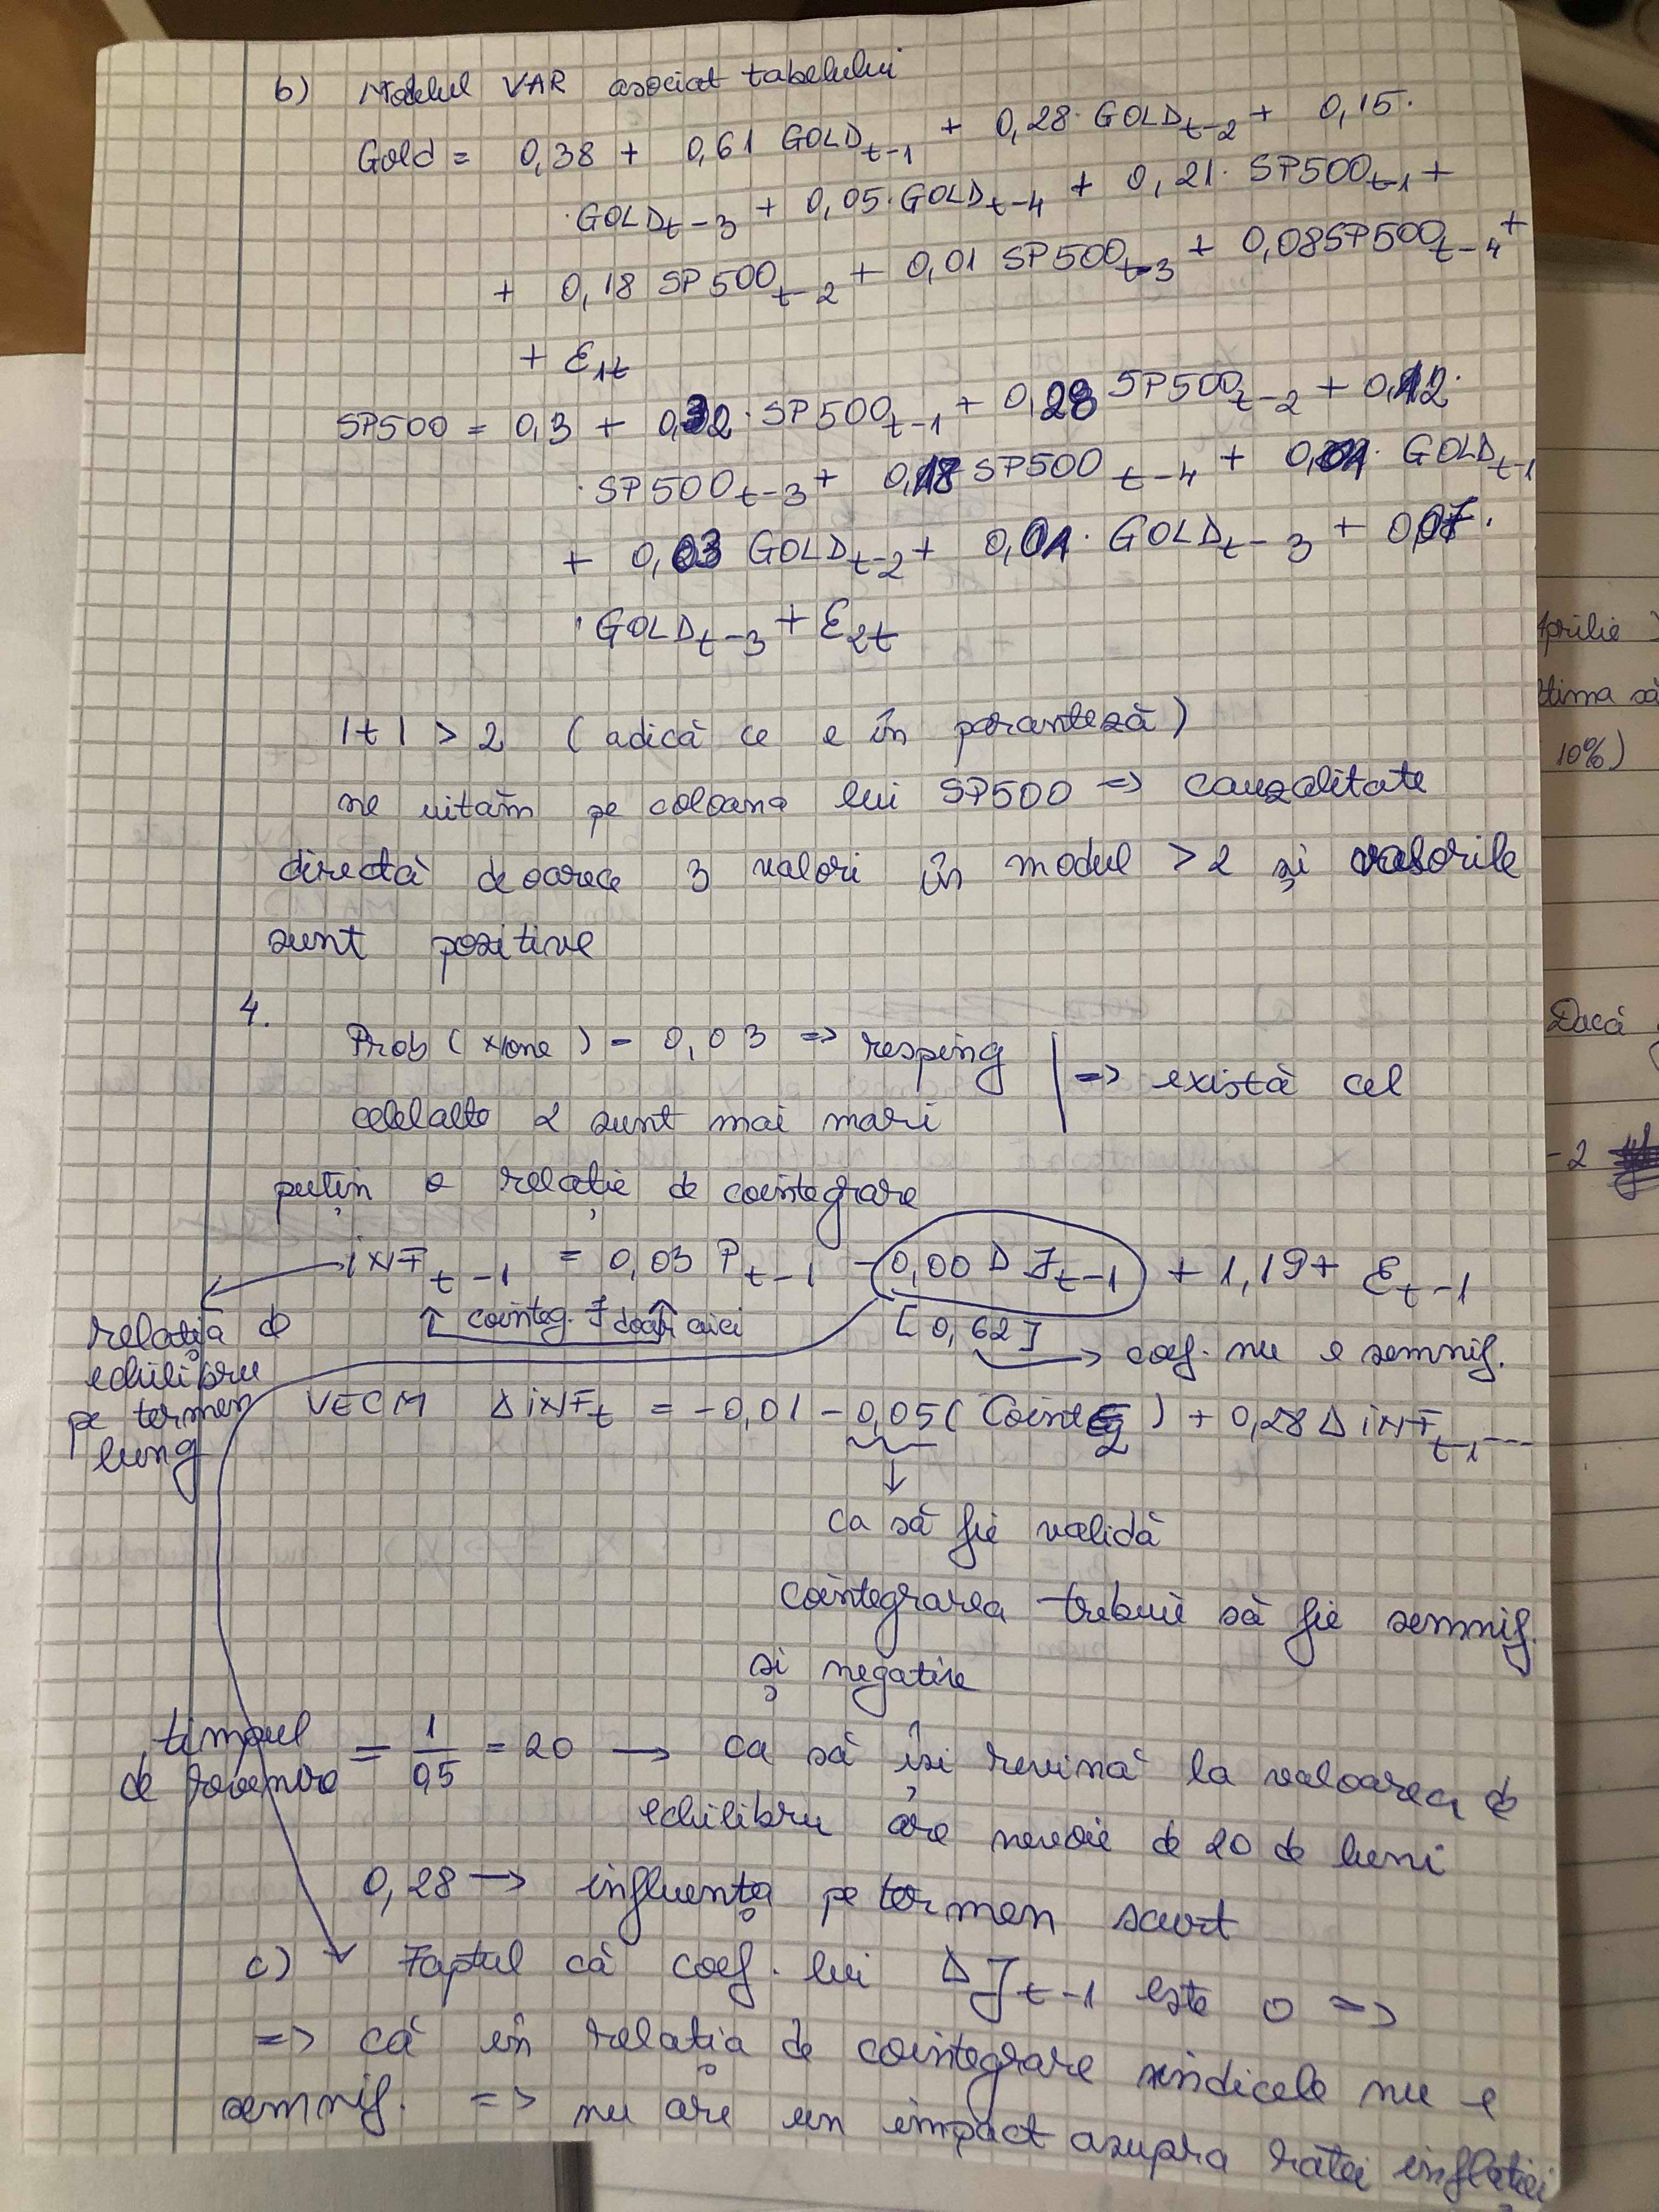 b) Modelul VAR asociat tabelului
Gold = 0,38 + 0,61 GOLDt-1 + 0,28· GOLDt-2 + 0,15·
·GOLDt-3 + 0,05·GOLDt-4 + 0,21· SP500t-1 +
+ 0,18 SP500t-2 + 0,01 SP500t-3 + 0,08SP500t-4 +
+ Ɛ1t
SP500 = 0,3 + 0,32·SP500t-1 + 0,28 SP500t-2 + 0,12·
·SP500t-3 + 0,18 SP500t-4 + GOLDt-1
+ 0,03 GOLDt-2 + 0,01· GOLDt-3 + 0,07·
·GOLDt-3 + Ɛ2t
|t| > 2 (adică ce e în paranteză)
ne uităm pe coloana lui SP500 => cauzalitate
directă deoarece 3 valori în modul > 2 și valorile
sunt pozitive
4.
Prob (None) - 0,03 => resping
celelalte 2 sunt mai mari
=> există cel
puțin o relație de cointegrare
iNFt-1 = 0,03 Pt-1 - 0,00 DJt-1 + 1,19+ Ɛt-1
cointeg. doar aici
[0,62] → coef. nu e semnif.
relația de
echilibru
pe termen
lung
VECM ΔiNFt = -0,01 - 0,05( CointEg ) + 0,28 ΔiNFt-1 ---
ca să fie validă
cointegrarea trebuie să fie semnif.
și negative
timpul
de revenire = 1/0,5 = 20 → ca să își revină la valoarea de
echilibru are nevoie de 20 de luni
0,28 → influența pe termen scurt
c) Faptul că coef. lui DJt-1 este 0 =>
=> că în relația de cointegrare indicele nu e
semnif. => nu are un impact asupra ratei inflației
prilie
tima să
10%)
Dacă
-2